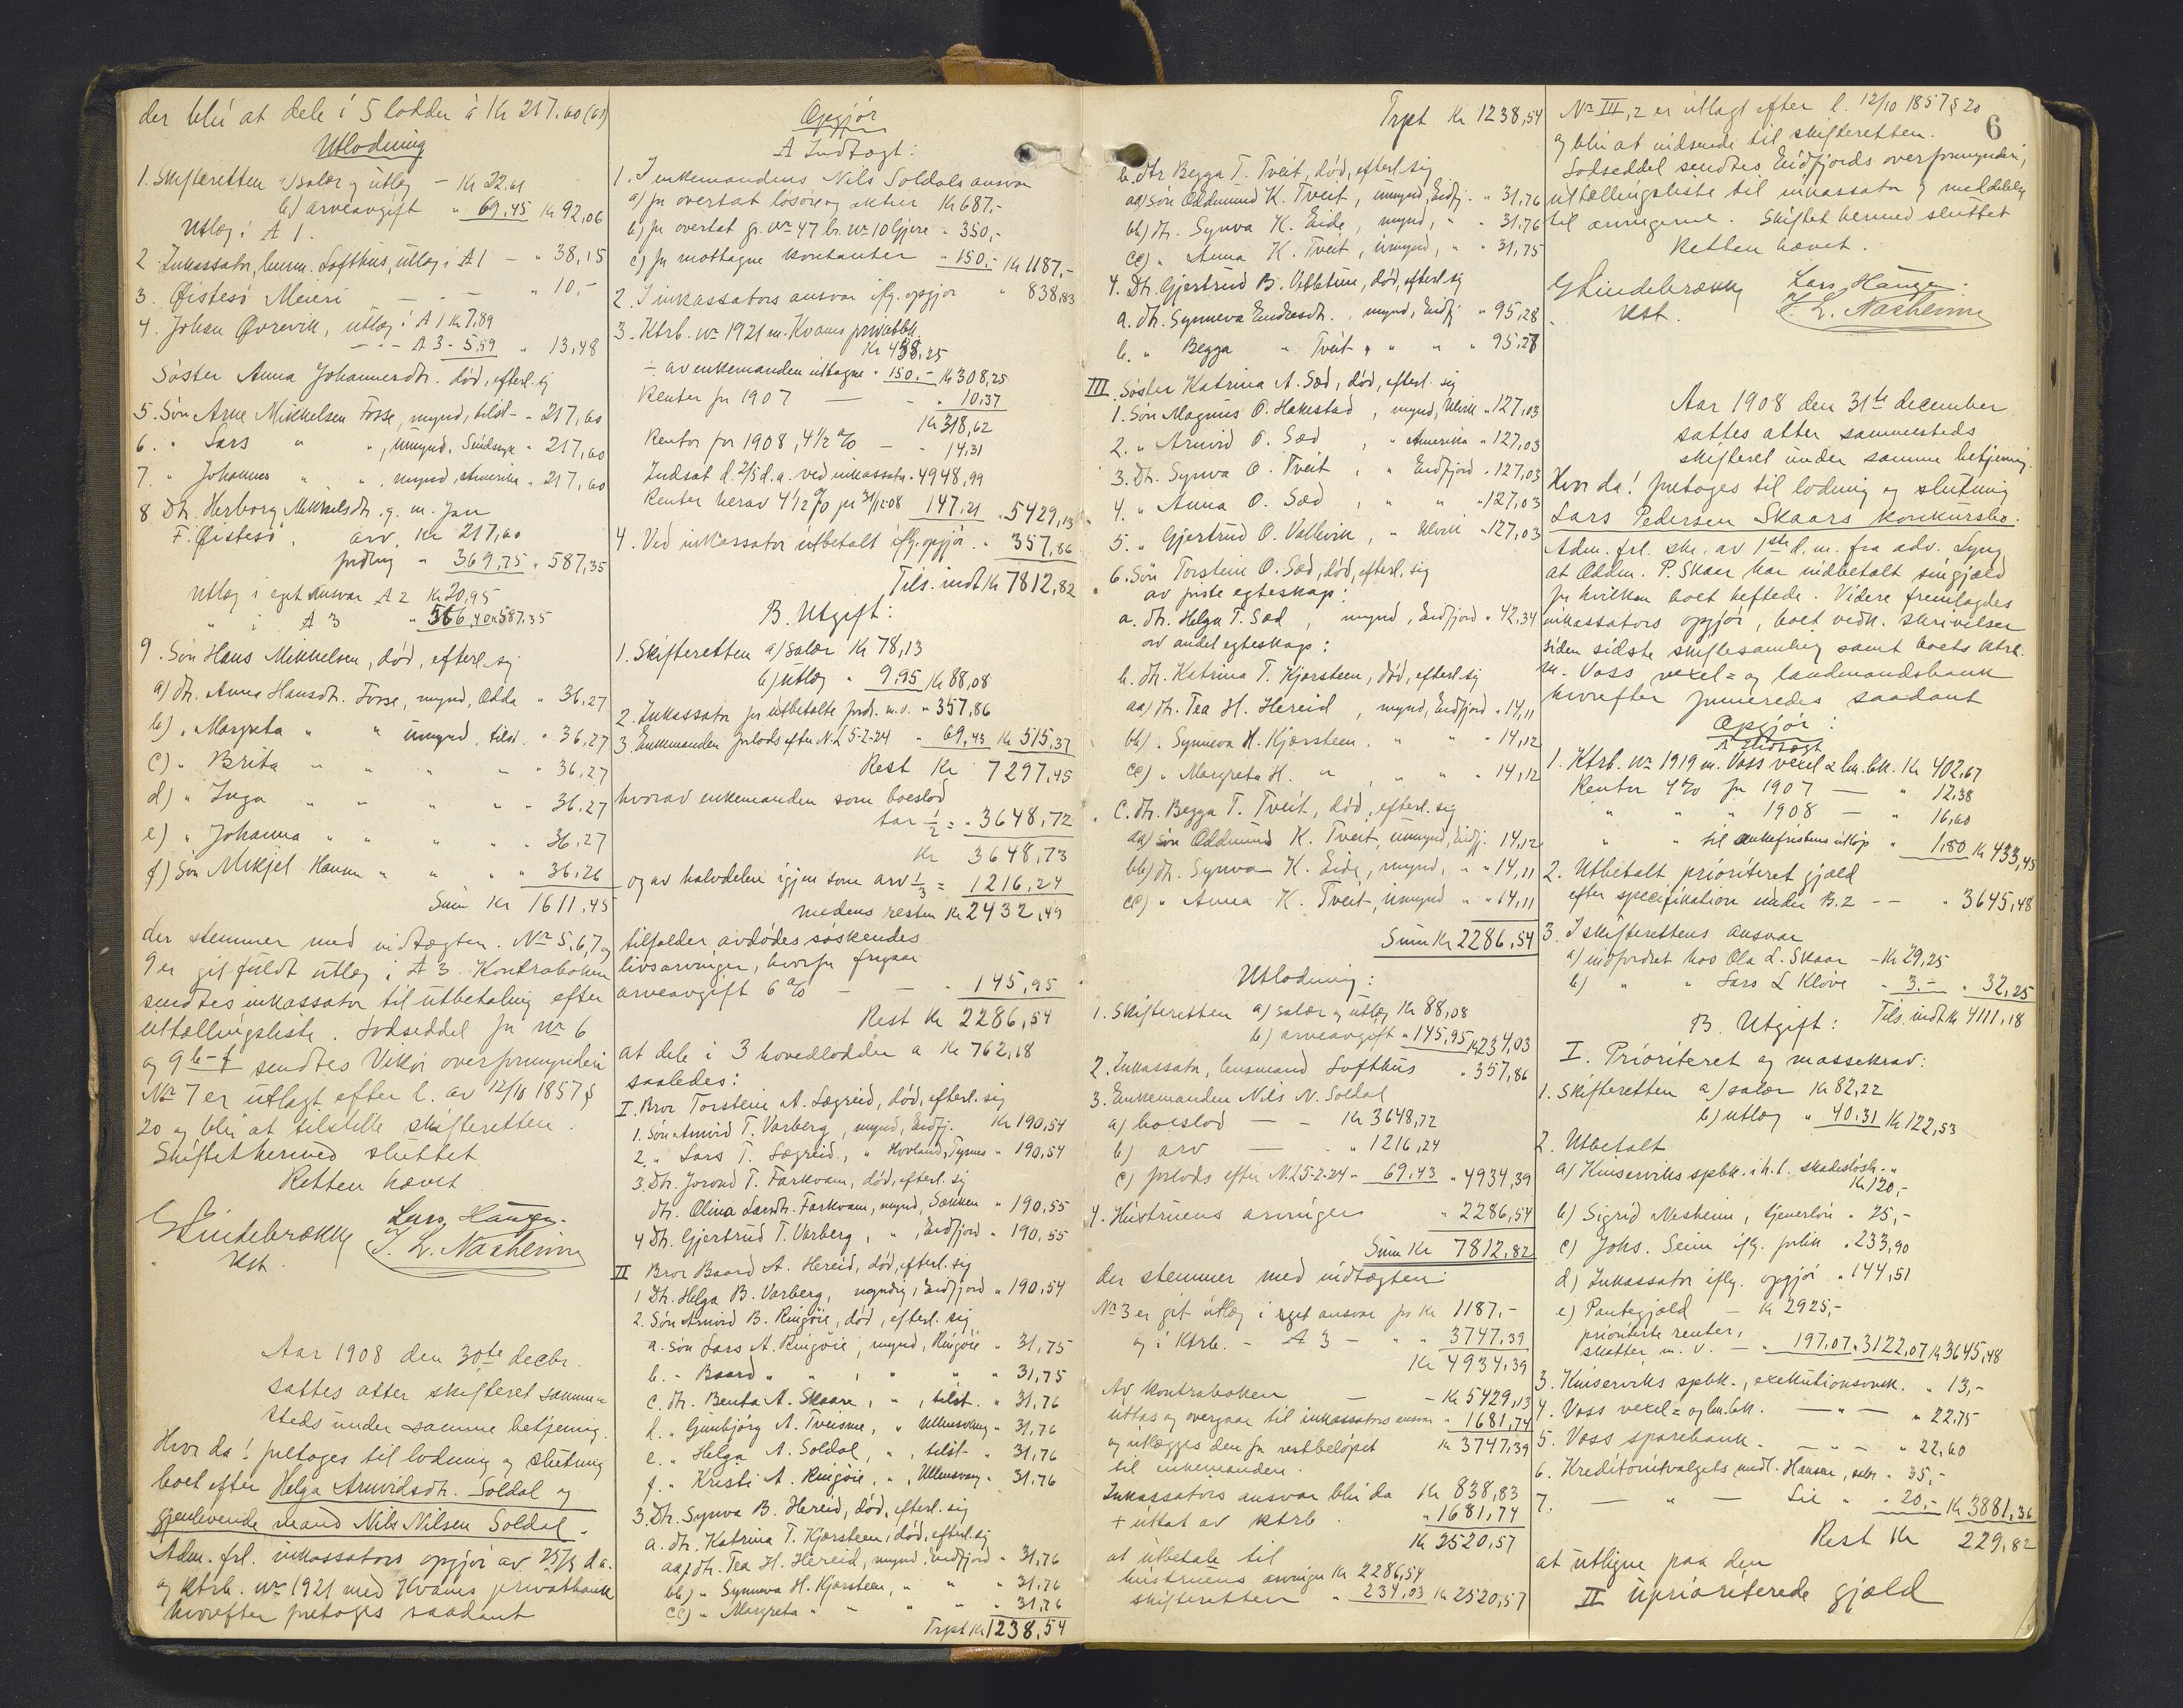 der blir at dele i 5 lodder à Kr 217,60 (61)
Utlodning
1. Skifteretten a) salær og utlæg - Kr 22,61
b) arveavgift " 69,45 Kr 92,06
Utlæg i A 1.
2. Inkassator, lensm. Lofthus, utlæg i A 1 - " 38,15
3. Øistesø Meieri " - - - " 10,-
4. Johan Øvrevik, utlæg i A 1 Kr 7,89
- " - A 3 - 5,59 " 13,48
Søster Anna Johannesdtr. død, efterl. sig
5. Søn Arne Mikkelsen Fosse, mynd, tilst - " 217,60
6. " Lars " " , umynd, " 217,60
7. " Johannes " " , mynd, Amerika " 217,60
8. Dtr. Herborg Mikkelsdtr. g. m. Jon
F. Øistesø, arv. Kr 217,60
fordring " 369,75 " 587,35
Utlæg i eget ansvar A 2 Kr 20,95
" i A 3 " 566,40 Kr 587,35
9. Søn Hans Mikkelsen, død, efterl. sig
a) dtr. Anna Hansdtr. Fosse, mynd, Odda " 36,27
b) " Margreta " " umynd. tilst. " 36,27
c) " Brita " " " " " 36,27
d) " Inga " " " " " 36,27
e) " Johanna " " " " " 36,27
f) Søn Mikjel Hansen " " " " 36,26
Sum Kr 1611,45
der stemmer med indtægten. No 5, 6, 7 og
9 er git fuldt utlæg i A 3. Kontraboken
sendtes inkassator til utbetaling efter
uttællingsliste. Lodseddel for no 6
og 9 b-f sendtes Vikør overformynderi
No 7 er utlagt efter l. av 12/10 1857 §
20 og blir at tilstille skifteretten.
Skiftet hermed sluttet
Retten hævet
G Lindebrække Lars Hauge.
Kst. T. L. Nasheim
Aar 1908 den 30te decbr.
sattes atter skifteret samme-
steds under samme betjening.
Hvor da! foretoges til lodning og slutning
boet efter Helga Arnvidsdtr. Soldal og
gjenlevende mand Nils Nilsen Soldal.
Adm. frl. inkassators opgjør av 25/8 d.a.
og ktrb. no 1921 med Kvams privatbank
hvorefter foretoges saadant
Opgjør
A Indtægt:
1. I enkemandens Nils Soldals ansvar
a) for overtat løsøre og aktier Kr 687,-
b) for overtat gr. no 47 br. no 10 Gjere " 350,-
c) for mottagne kontanter " 150,- Kr 1187,-
2. I inkassators ansvar iflg. opgjør " 838,83
3. Ktrb. no 1921 m. Kvams privatbk.
Kr 458,25
- av enkemanden uttagne " 150,- Kr 308,25
Renter for 1907 - - " 10,37
Kr 318,62
Renter for 1908, 4 1/2 % - " 14,31
Indsat d. 2/5 d.a. ved inkassator " 4948,99
Renter herav 4 1/2 % pr 31/12 08 147,21 " 5429,13
4. Ved inkassator utbetalt iflg. opgjør " 357,86
Tils. indt. Kr 7812,82
B. Utgift:
1. Skifteretten a) salær Kr 78,13
b) utlæg " 9,95 Kr 88,08
2. Inkassator for utbetalte fordr. m.v. " 357,86
3. Enkemanden forlods efter N.L. 5-2-24 " 69,43 Kr 515,37
Rest Kr 7297,45
hvorav enkemanden som boeslod
tar 1/2 = " 3648,72
Kr 3648,73
og av halvdelen igjen som arv 1/3 = 1216,24
medens resten Kr 2432,49
tilfalder avdødes søskendes
livsarvinger, hvorfor fragaar
arveavgift 6 % - - " 145,95
Rest Kr 2286,54
at dele i 3 hovedlodder a Kr 762,18
saaledes:
I. Bror Torstein A. Lægreid, død, efterl. sig
1. Søn Arnvid T. Varberg, mynd, Eidfj. Kr 190,54
2. " Lars T. Lægreid, " Hovland, Tysnes " 190,54
3. Dtr. Jorond T. Farkvam, død, efterl. sig
dtr. Olina Larsdtr. Farkvam, mynd, " 190,55
4 Dtr. Gjertrud T. Varberg, ", Eidfjord " 190,55
II Bror Baard A. Hereid, død, efterl. sig
1 Dtr. Helga B. Varberg, myndig, Eidfjord " 190,54
2. Søn Arnvid B. Ringøie, død, efterl. sig
a. søn Lars A. Ringøie, mynd, Ringøie " 31,75
b. - Baard " " , " " " 31,75
c. dtr. Benta A. Skaare, ", tilst. " 31,76
d. " Gunbjørg A. Tveisme, " Ullensvang " 31,76
e. " Helga A. Soldal, ", tilst- " 31,76
f. " Kristi A. Ringøie, ", Ullensvang " 31,76
3. Dtr. Synva B. Hereid, død, efterl. sig
a. dtr. Katrina T. Kjørsteen, død, efterl. sig
aa) dtr. Tea H. Hereid, mynd, Eidfjord " 31,76
bb) " Synneva H. Kjørsteen, " " " 31,76
cc) " Margreta " - " " " 31,76
Trpt Kr 1238,54
Trpt Kr 1238,54
b. dtr Begga T. Tveit, død, efterl. sig
aa) søn Oddmund K. Tveit, umynd, Eidfj. " 31,76
bb) dtr. Synva K. Eide, mynd, " " 31,76
cc) " Anna K. Tveit, umynd, " " 31,75
4. Dtr. Gjertrud B. Vetletun, død, efterl. sig
a. dtr. Synneva Endresdtr., mynd, Eidfj " 95,28
b. " Begga " Tveit " " " " 95,28
III. Søster Katrina A. Sæd, død, efterl. sig
1. Søn Magnus O. Hakestad, mynd, Ulvik " 127,03
2. " Arnvid O. Sæd, " Amerika " 127,03
3. Dtr. Synva O. Tveit, " Eidfjord " 127,03
4. " Anna O. Sæd, " " " 127,03
5. " Gjertrud O. Vallevik, " Ulvik " 127,03
6. Søn Torstein O. Sæd, død, efterl. sig
av første egteskap:
a. dtr. Helga T. Sæd, mynd, Eidfjord " 42,34
av andet egteskap:
b. dtr. Katrina T. Kjørsteen, død, efterl. sig
aa) dtr. Tea H. Hereid, mynd, Eidfjord " 14,11
bb) " Synneva H. Kjørsteen, " " " 14,12
cc) " Margreta H. " , " " " 14,12
c. dtr. Begga T. Tveit, død, efterl. sig
aa) søn Oddmund K. Tveit, umynd, Eidfj. 14,12
bb) dtr. Synva K. Eide, mynd, " " 14,11
cc) " Anna K. Tveit, umynd " " 14,11
Sum Kr 2286,54
Utlodning:
1. Skifteretten a) salær og utlæg Kr 88,08
b) arveavgift " 145,95 Kr 234,03
2. Inkassator, lensmand Lofthus " 357,86
3. Enkemanden Nils N. Soldal
a) boeslod - - Kr 3648,72
b) arv - " 1216,24
c) forlods efter N.L. 5-2-24 " 69,43 " 4934,39
4. Hustruens arvinger " 2286,54
Sum Kr 7812,82
der stemmer med indtægten
No 3 er git utlæg i eget ansvar for Kr 1187,-
og i Ktrb. - A 3 - " " 3747,39
Kr 4934,39
Av kontraboken - - Kr 5429,13
uttas og overgaar til inkassators ansvar " 1681,74
og utlægges den for restbeløpet Kr 3747,39
til enkemanden.
Inkassators ansvar blir da Kr 838,83
+ uttat av ktrb. " 1681,74
Kr 2520,57
at utbetale til
hustruens arvinger Kr 2286,54
skifteretten " 234,03 Kr 2520,57
No III, 2 er utlagt efter l. 12/10 1857 § 20
og blir at indsende til skifteretten.
Lodseddel sendtes Eidfjords overformynderi,
uttællingsliste til inkassator og meddelelse
til arvingerne. Skiftet hermed sluttet
Retten hævet.
G Lindebrække Lars Hauge.
Kst. T. L. Nasheim
6
Aar 1908 den 31te december
sattes atter sammesteds
skifteret under samme betjening.
Hvor da! foretoges til lodning og slutning
Lars Pedersen Skaars konkursbo.
Adm. frl. skr. av 1ste d.m. fra adv. Lyng
at Oddm. P. Skaar har indbetalt sin gjæld
for hvilken boet heftede. Videre fremlagdes
inkassators opgjør, boet vedk. skrivelser
siden sidste skiftesamling samt boets ktrb.
m. Voss vexel= og landmandsbank
hvorefter foretoges saadant
Opgjør:
A Indtægt
1. Ktrb. no 1919 m. Voss vexel & lm. bk. Kr 402,67
Renter 4 % for 1907 - " 12,38
" " " 1908 - " 16,60
" " til ankefristens utløp " 1,80 Kr 433,45
2. Utbetalt prioriteret gjæld
efter specifikation under B.2 - - " 3645,48
3. I skifterettens ansvar
a) indfordret hos Ola L. Skaar - Kr 29,25
b) " " Lars L Kløve " 3,- " 32,25
Tils. indt. Kr 4111,18
B. Utgift:
I. Prioriteret og massekrav:
1. Skifteretten a) salær Kr 82,22
b) utlæg " 40,31 Kr 122,53
2. Utbetalt
a) Kinserviks spbk. i h.t. skadesløsbr. "
Kr 120,-
b) Sigrid Nesheim, tjenerløn " 25,-
c) Johs. Seim iflg. forlik " 233,90
d) Inkassator iflg. opgjør " 144,51
e) Pantegjæld - Kr 2925,-
prioriterte renter,
skatter m.v. - " 197,07 " 3122,07 Kr 3645,48
3. Kinserviks spbk., exekutionsomk. " 13,-
4. Voss vexel= og lm. bk. - " - " 22,75
5. Voss sparebank - " - " 22,60
6. Kreditorutvalgets medl. Hansen, salær " 35,-
7. - " - Lie " " 20,- Kr 3881,36
Rest Kr 229,82
at utligne paa den
II uprioriterede gjæld